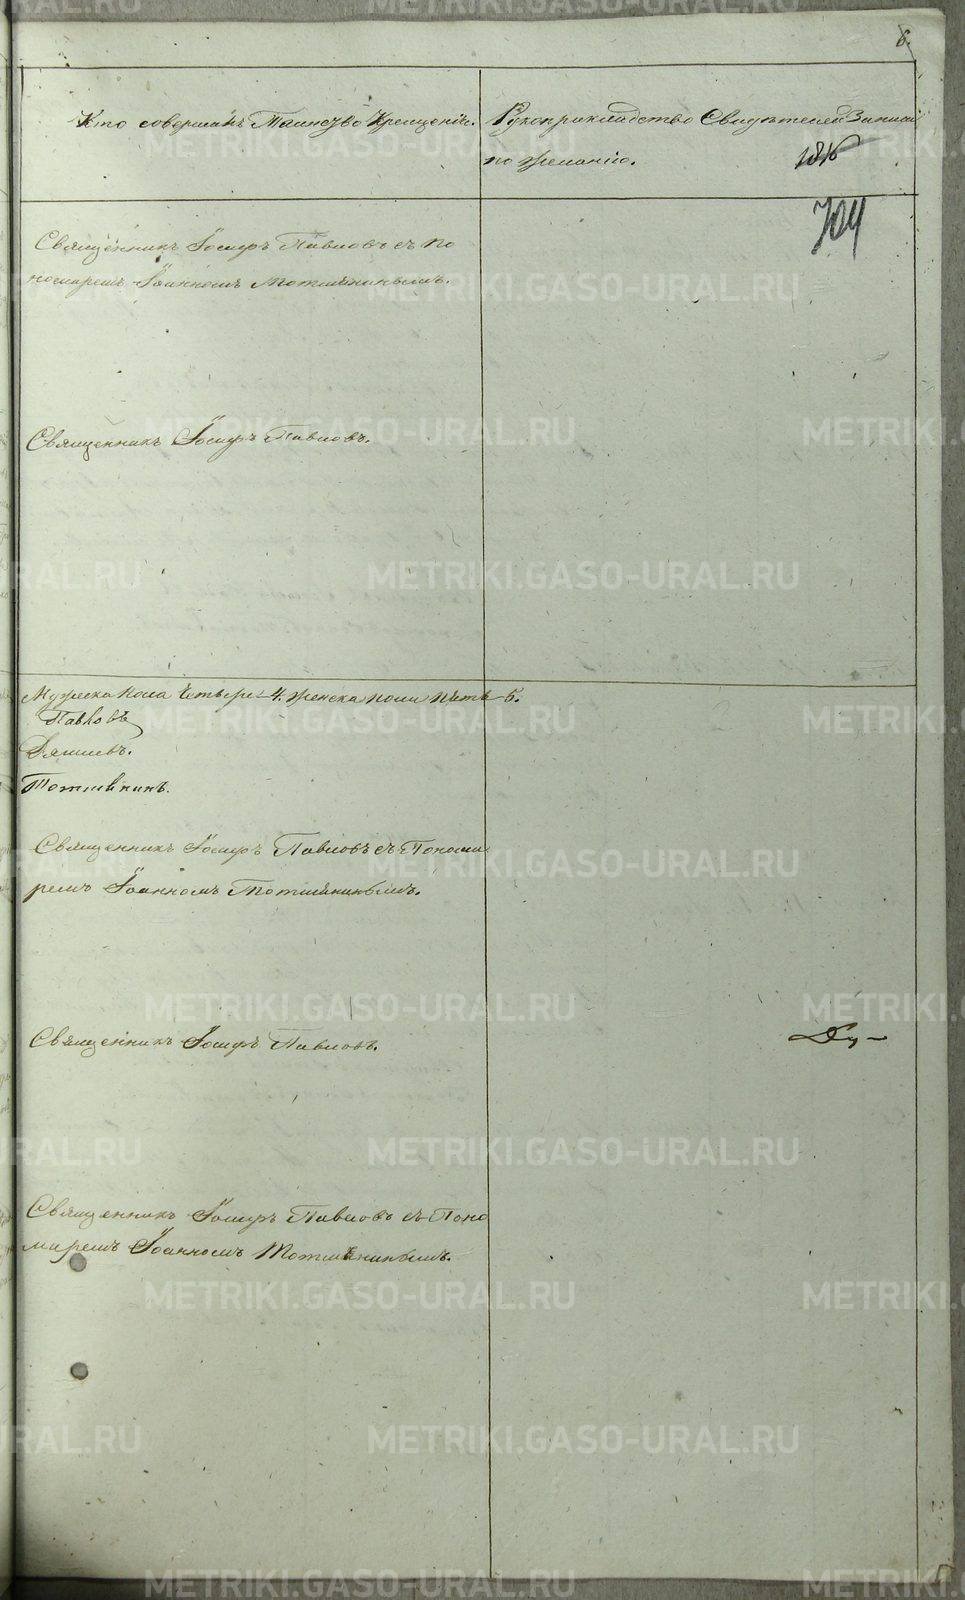 6.
Кто совершалъ Таинство Крещенія.
Рукоприкладство Свидѣтелей Записи
по желанію.
704
Священникъ Іосифъ Павловъ съ По
номаремъ Іоанномъ Тотмянинымъ.
Священникъ Іосифъ Павловъ.
Мужеска пола четыре 4. женска пола пять 5.
Павловъ
Тотмянинъ.
Священникъ Іосифъ Павловъ съ Понома
ремъ Іоанномъ Тотмянинымъ.
Священникъ Іосифъ Павловъ.
Ду-
Священникъ Іосифъ Павловъ съ Поно
маремъ Іоанномъ Тотмянинымъ.
METRIKI.GASO-URAL.RU